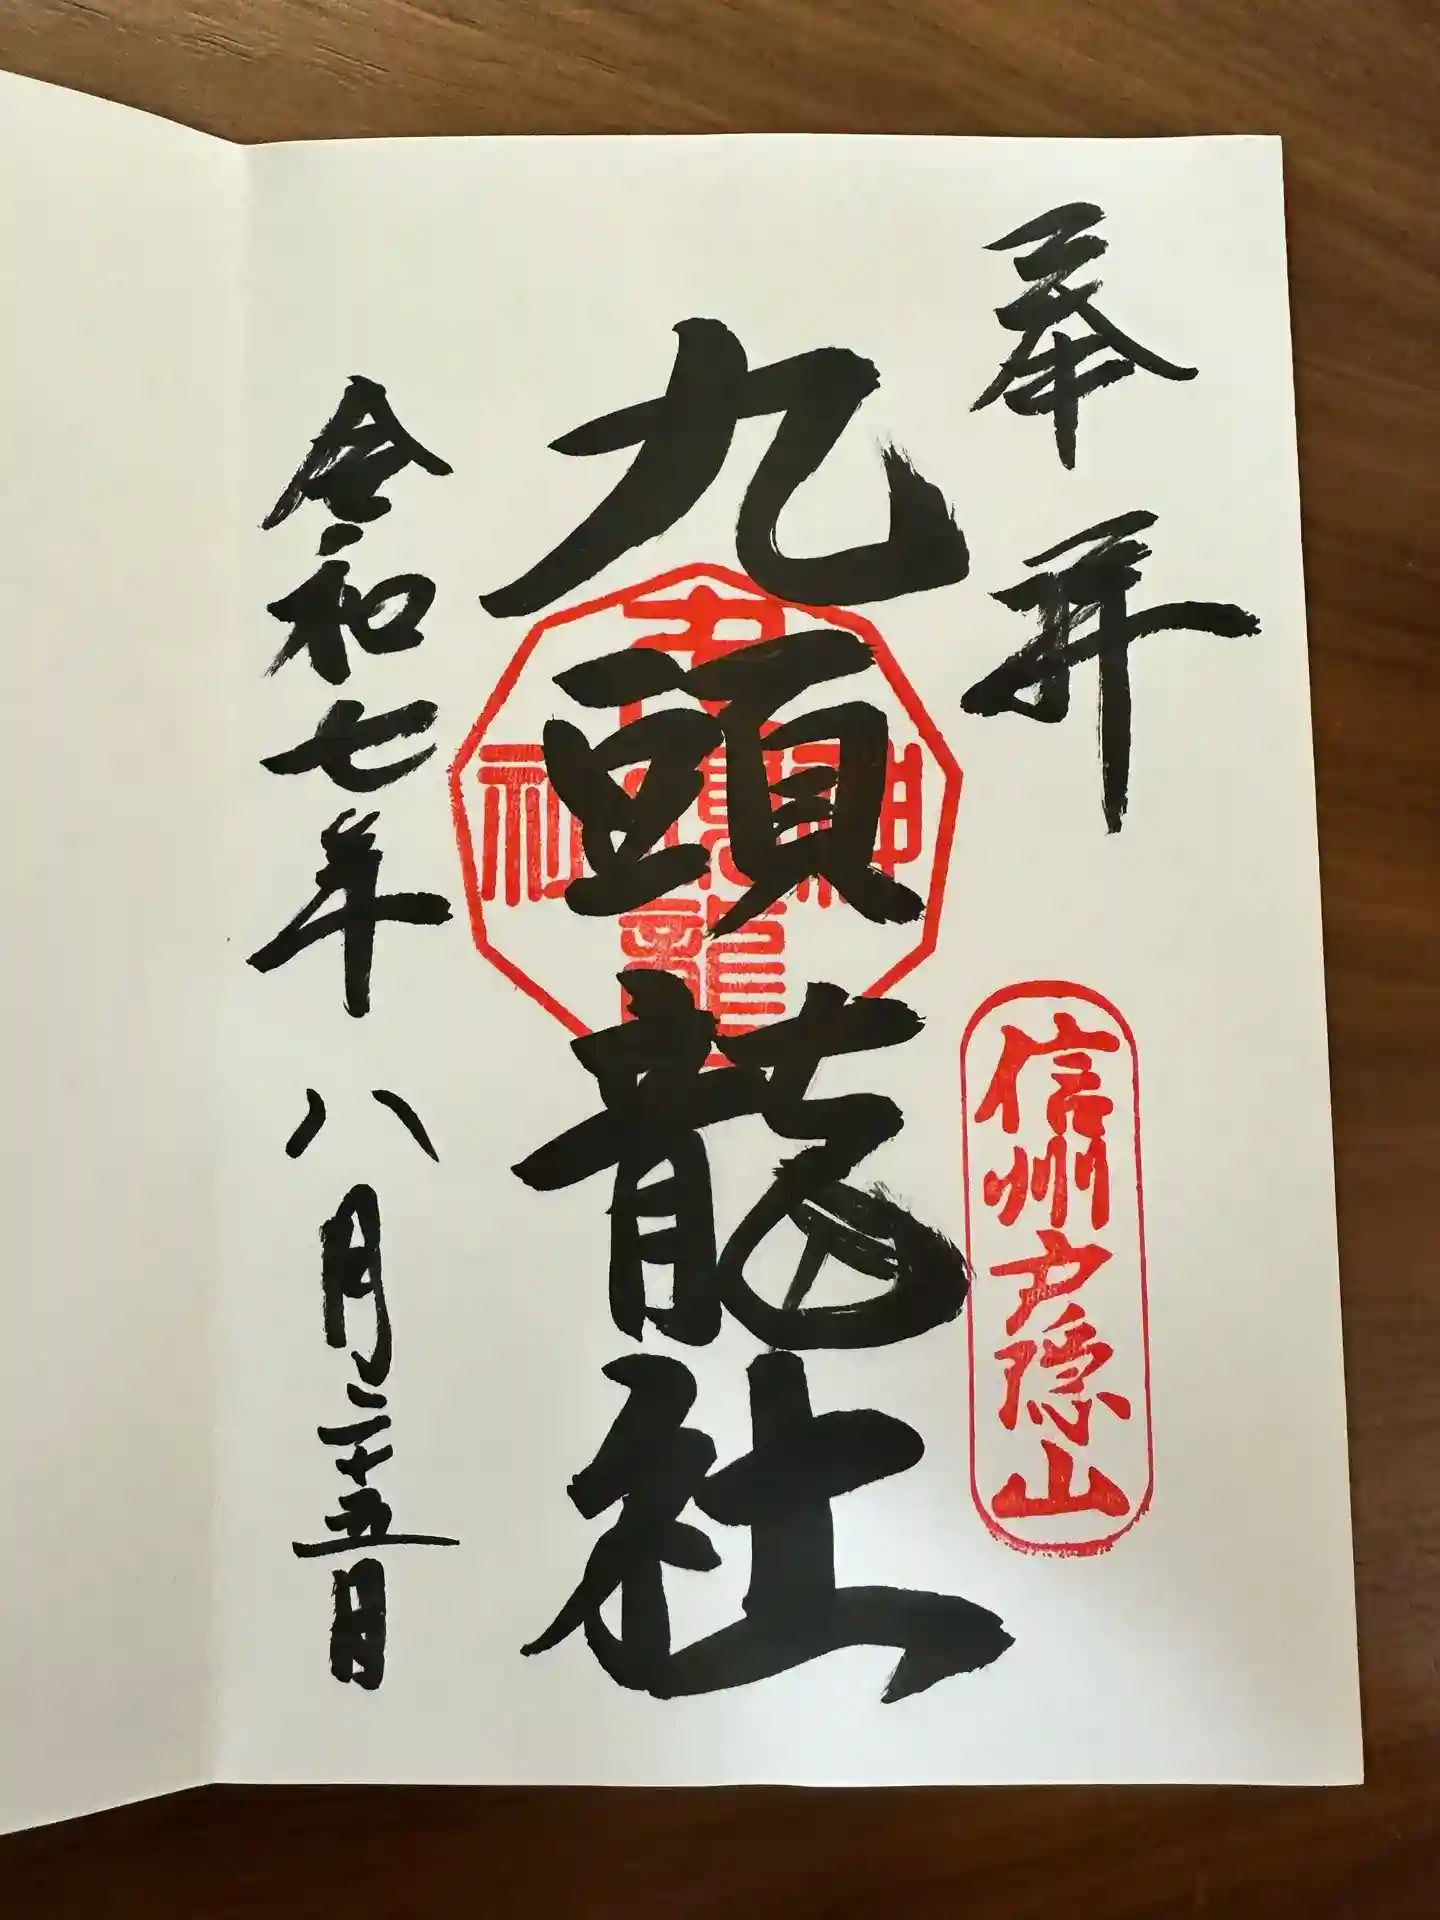 奉拝
信州戸隠山
九頭龍社
九頭龍神社
令和七年八月二十五日